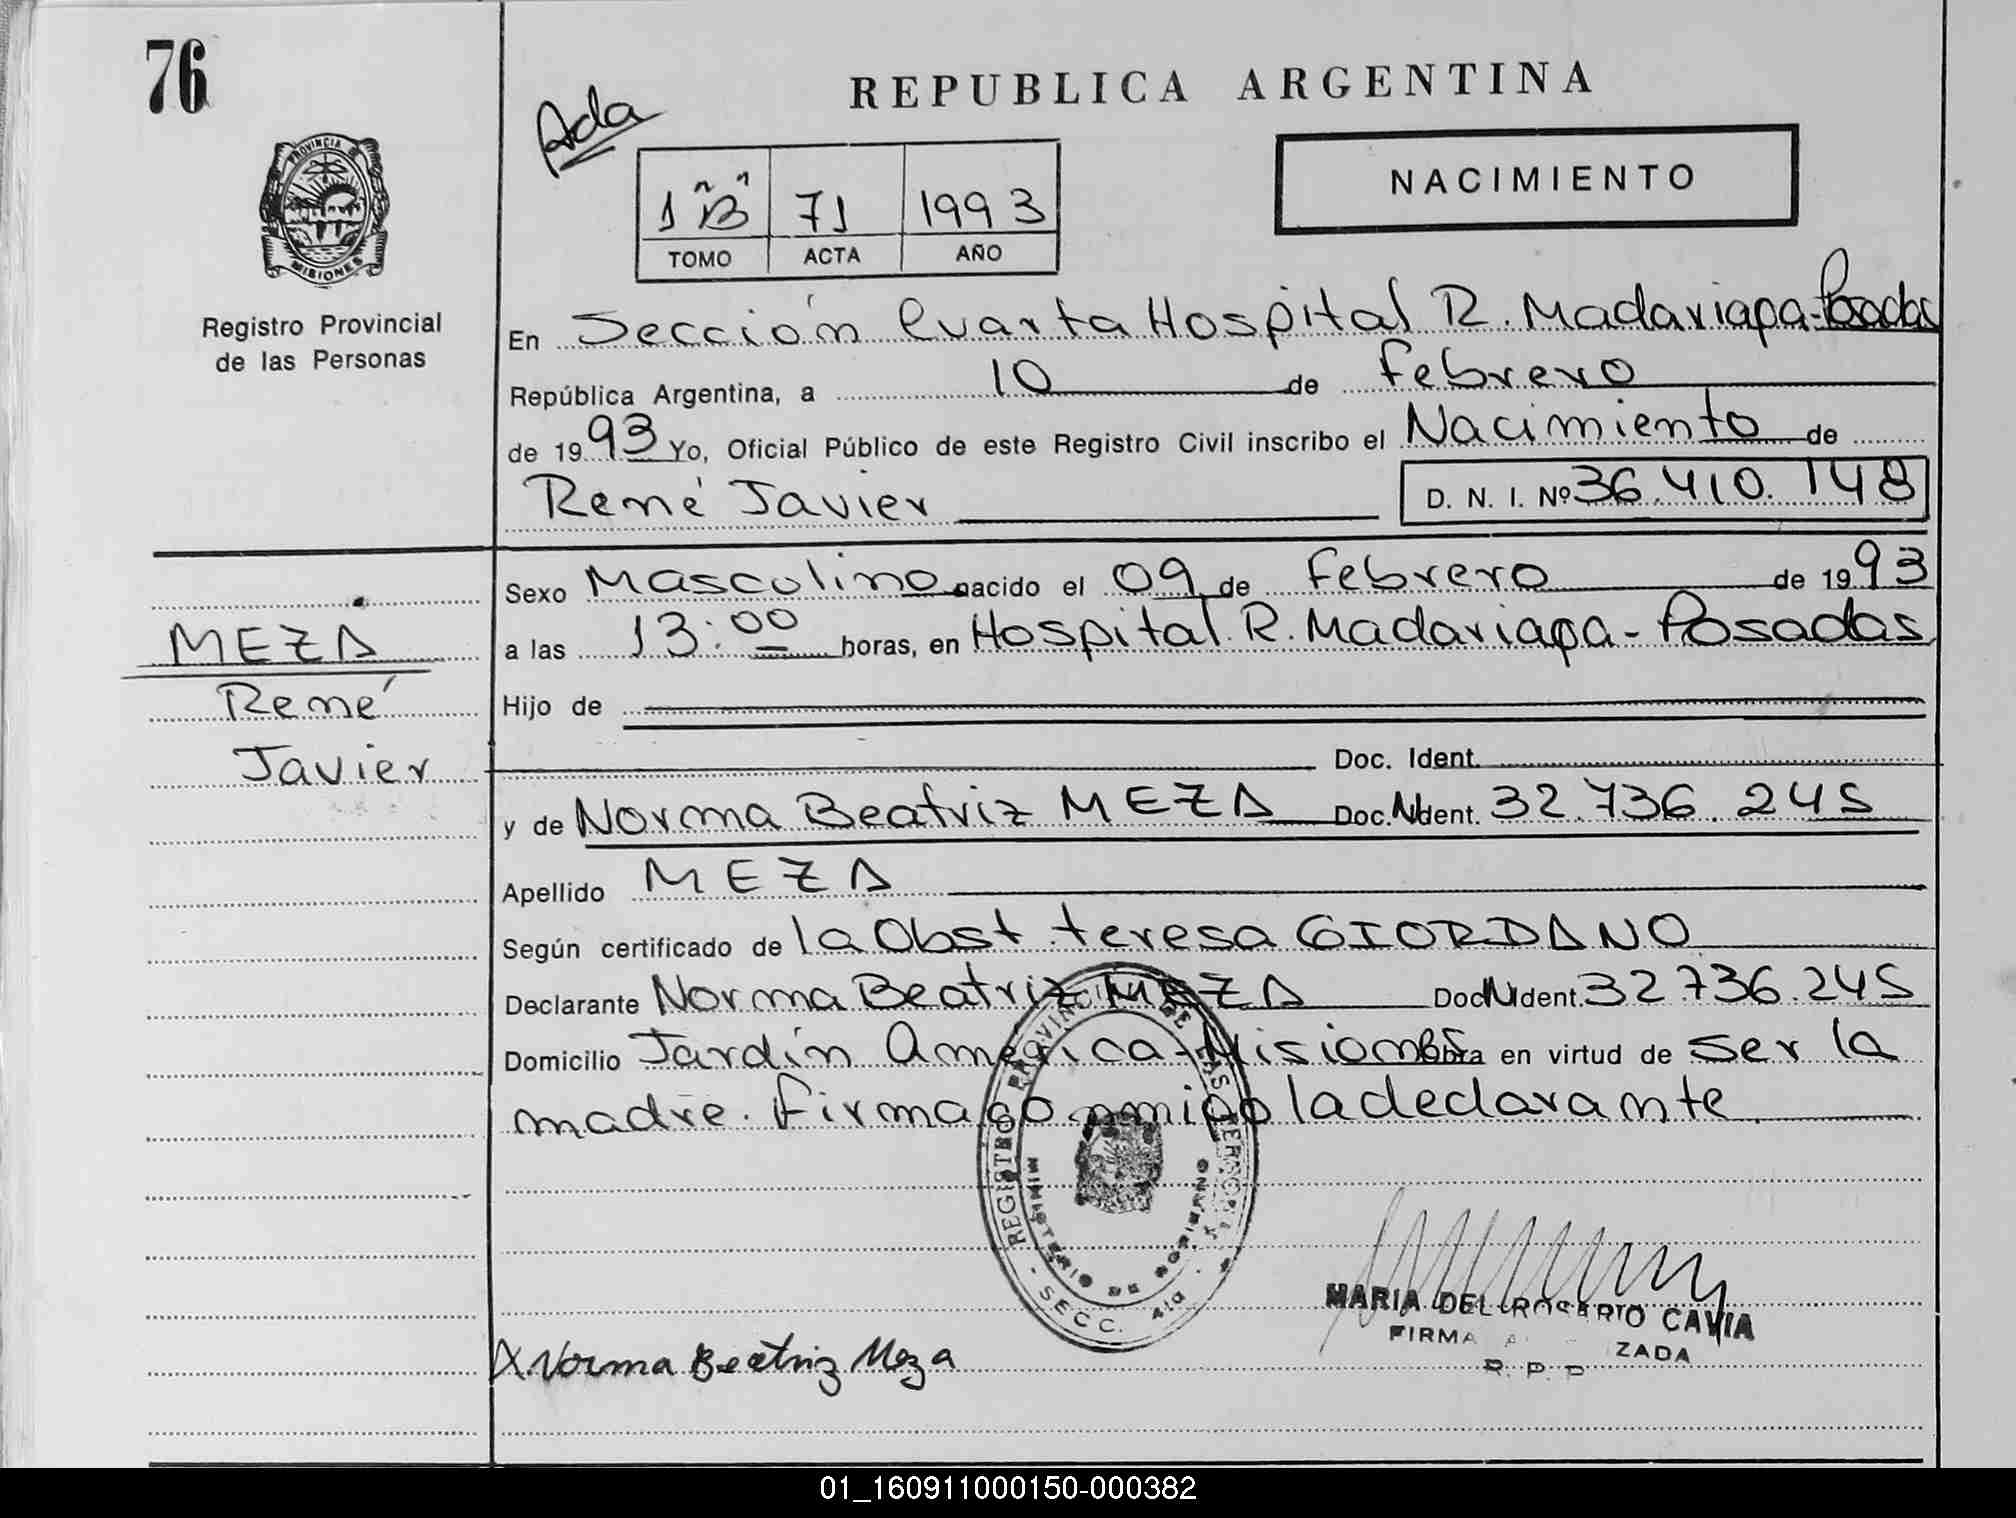 76
REPUBLICA ARGENTINA
Ada
PROVINCIA DE
MISIONES
Registro Provincial
de las Personas
1 "B" 71 1993
TOMO ACTA AÑO
NACIMIENTO
En Sección Cuarta Hospital R. Madariaga-Posadas
República Argentina, a 10 de febrero
de 1993 Yo, Oficial Público de este Registro Civil inscribo el Nacimiento de
René Javier D. N. I. Nº 36.410.148
Sexo Masculino nacido el 09 de febrero de 1993
a las 13:00 horas, en Hospital R. Madariaga-Posadas
MEZA
René
Javier
Hijo de
Doc. Ident.
y de Norma Beatriz MEZA Doc. Ident. 32.736.245
Apellido MEZA
Según certificado de la Obst. teresa GIORDANO
Declarante Norma Beatriz MEZA Doc. Ident. 32.736.245
Domicilio Jardín América-Misiones Obra en virtud de ser la
madre. firma conmigo la declarante
REGISTRO PROVINCIAL DE LAS PERSONAS
MINISTERIO DE GOBIERNO
SECC. 4ta
MARIA DEL ROSARIO CAVIA
FIRMA ZADA
R. P. P
X Norma Beatriz Meza
01_160911000150-000382